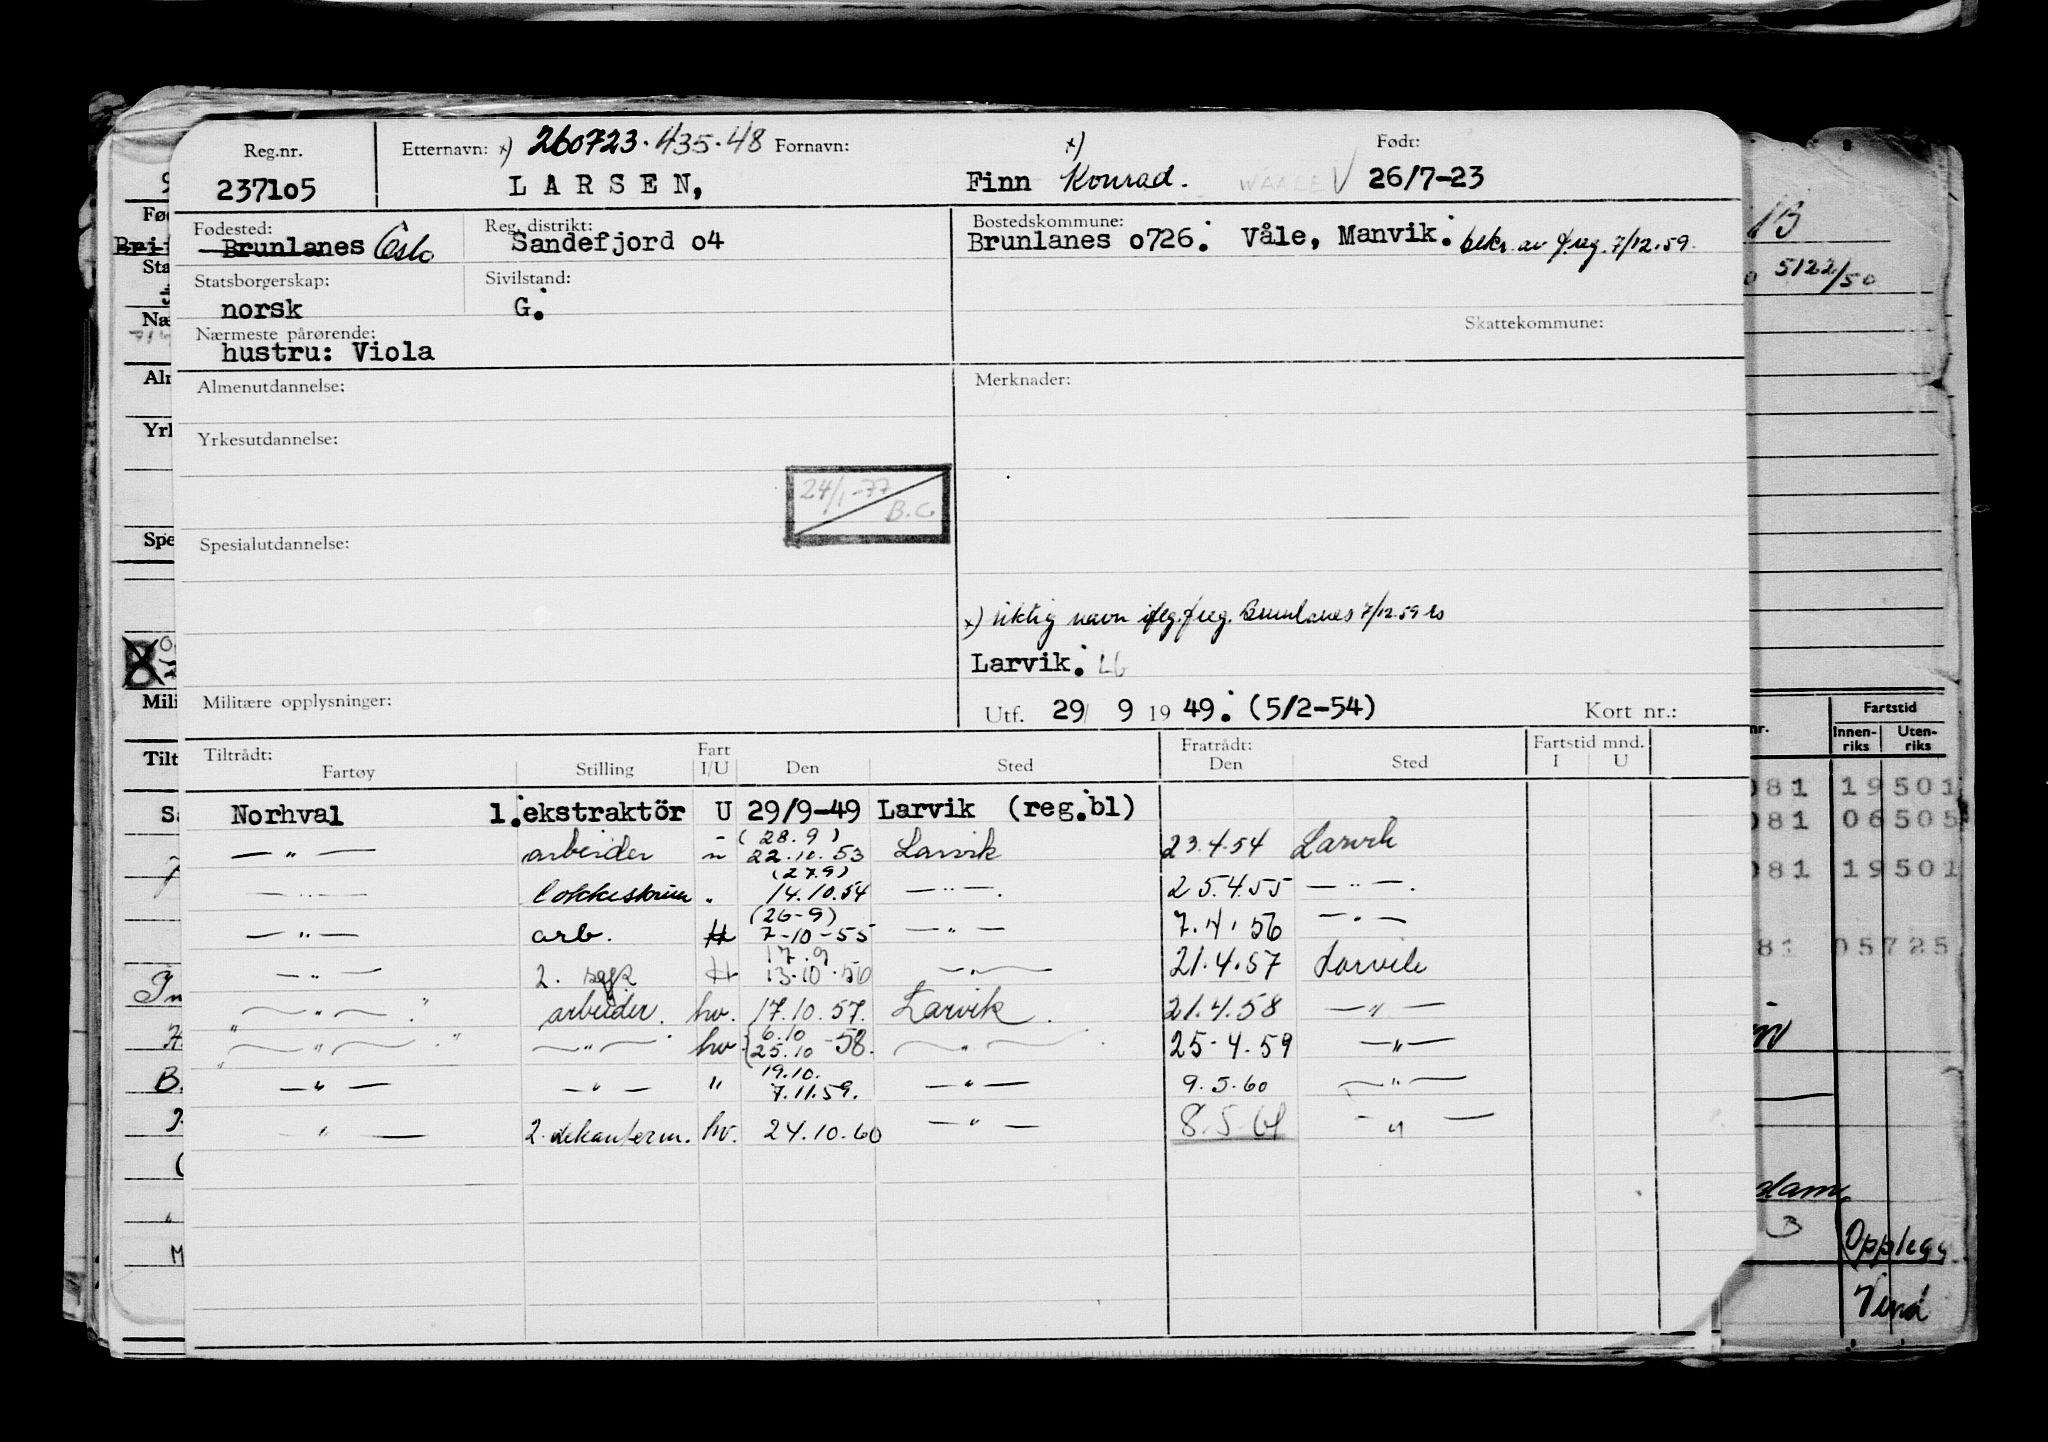 Reg.nr. Etternavn: x) 260723.435.48 Fornavn: x) Født:
237105 LARSEN, Finn Konrad. WAALE V 26/7-23
Fødested: Reg. distrikt: Bostedskommune:
Brunlanes Oslo Sandefjord o4 Brunlanes o726. Våle, Manvik. bekr. av f.reg. 7/12.59.
Statsborgerskap: Sivilstand:
norsk G.
Nærmeste pårørende: Skattekommune:
hustru: Viola
Almenutdannelse: Merknader:
Yrkesutdannelse:
24/1-77
B.G.
Spesialutdannelse:
x) riktig navn iflg. f.reg. Brunlanes 7/12.59
Larvik.
Militære opplysninger: Utf. 29/ 9 19 49. (5/2-54) Kort nr.:
Tiltrådt: Fart Fratrådt: Fartstid mnd.
Fartøy Stilling I/U Den Sted Den Sted I U
Norhval 1.ekstraktör U 29/9-49 Larvik (reg.bl)
(28.9)
— " — arbeider " 22.10.53 Larvik 23.4.54 Larvik
(27.9)
— " — " 14.10.54 — " —. 25.4.55 — " —.
(26-9)
— " — arb. H 7-10-55 — " — 7.4.56 — " —
17.9
— " — 2. H 13.10.56 — " — 21.4.57 Larvik
— " — arbeider. hv. 17.10.57. Larvik. 21.4.58 — " —
6.10
— " — — " — hv. 25.10 -58. — " — 25-4.59 — " —
19.10.
— " — — " — " 7.11.59. — " — 9.5.60 — " —
" — 2. dekanterm. hv. 24.10.60 — " — 8.5.61 — " —
5122/50
nr. Fartstid
Innen-riks Uten-riks
081 19501
081 06505
081 19501
81 05725
B
Opplegg